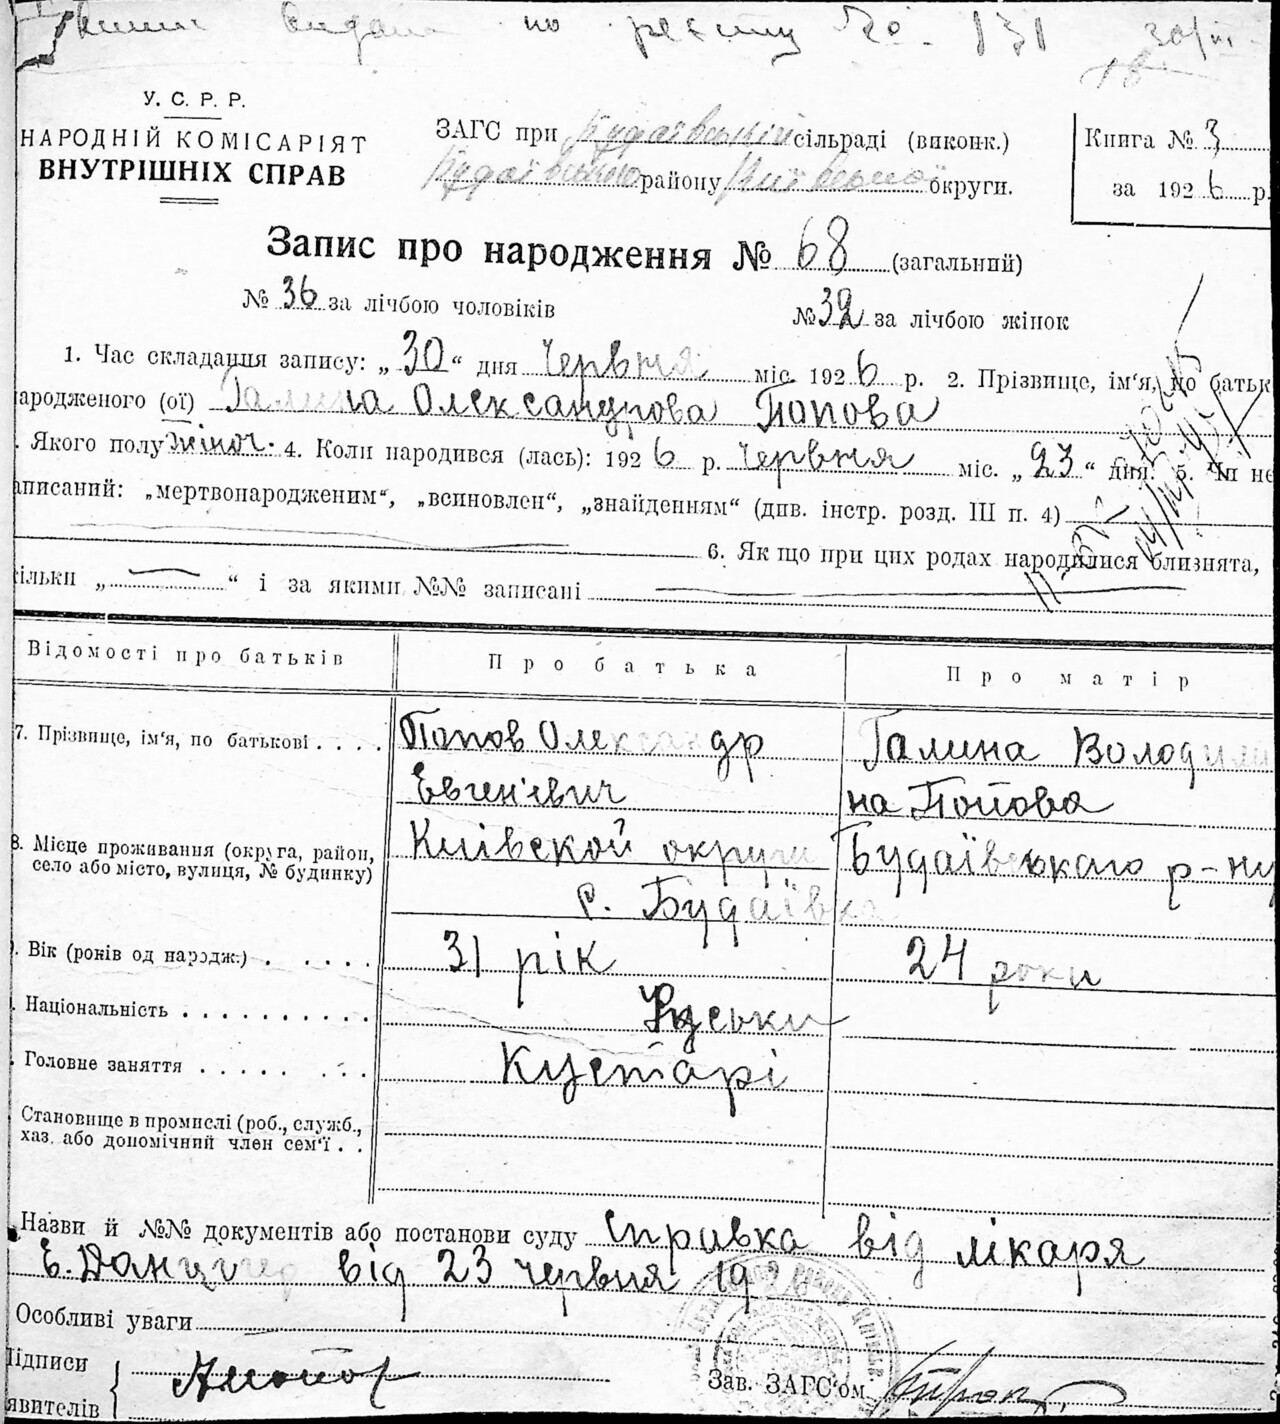 видано по реєстру № 131 30/VI
У. С. Р. Р.
НАРОДНІЙ КОМІСАРІЯТ
ВНУТРІШНІХ СПРАВ
ЗАГС при Будаївській сільраді (виконк.)
Будаївського району Київської округи.
Книга № 3
за 1926 р.
Запис про народження № 68 (загальний)
№ 36 за лічбою чоловіків № 32 за лічбою жінок
1. Час складання запису: „30“ дня Червня міс. 1926 р. 2. Прізвище, ім'я, по батьк
ародженого (ої) Галина Олександрова Попова
. Якого полу жіноч. 4. Коли народився (лась): 1926 р. Червня міс. „23“ дня. 5. Чи не
аписаний: „мертвонародженим“, „всиновлен“, „знайденням“ (див. інстр. розд. III п. 4)
6. Як що при цих родах народилися близнята,
кільки „ — “ і за якими №№ записані
Відомості про батьків Про батька Про матір
7. Прізвище, ім'я, по батькові . . . . Попов Олександр Галина Володими
Евгенієвич на Попова
8. Місце проживання (округа, район, Київской округи Будаївського р-ну
село або місто, вулиця, № будинку)
с. Будаївка
. Вік (років од народж.) . . . . . 31 рік 24 роки
. Національність . . . . . . . . . . Руськи
. Головне заняття . . . . . . . . Кустарі
. Становище в промислі (роб., служб.,
хаз. або допомічний член сем'ї . .
Назви й №№ документів або постанови суду справка від лікаря
Е. Данцигер від 23 червня 192
Особливі уваги
Підписи
явителів
Зав. ЗАГС'ом